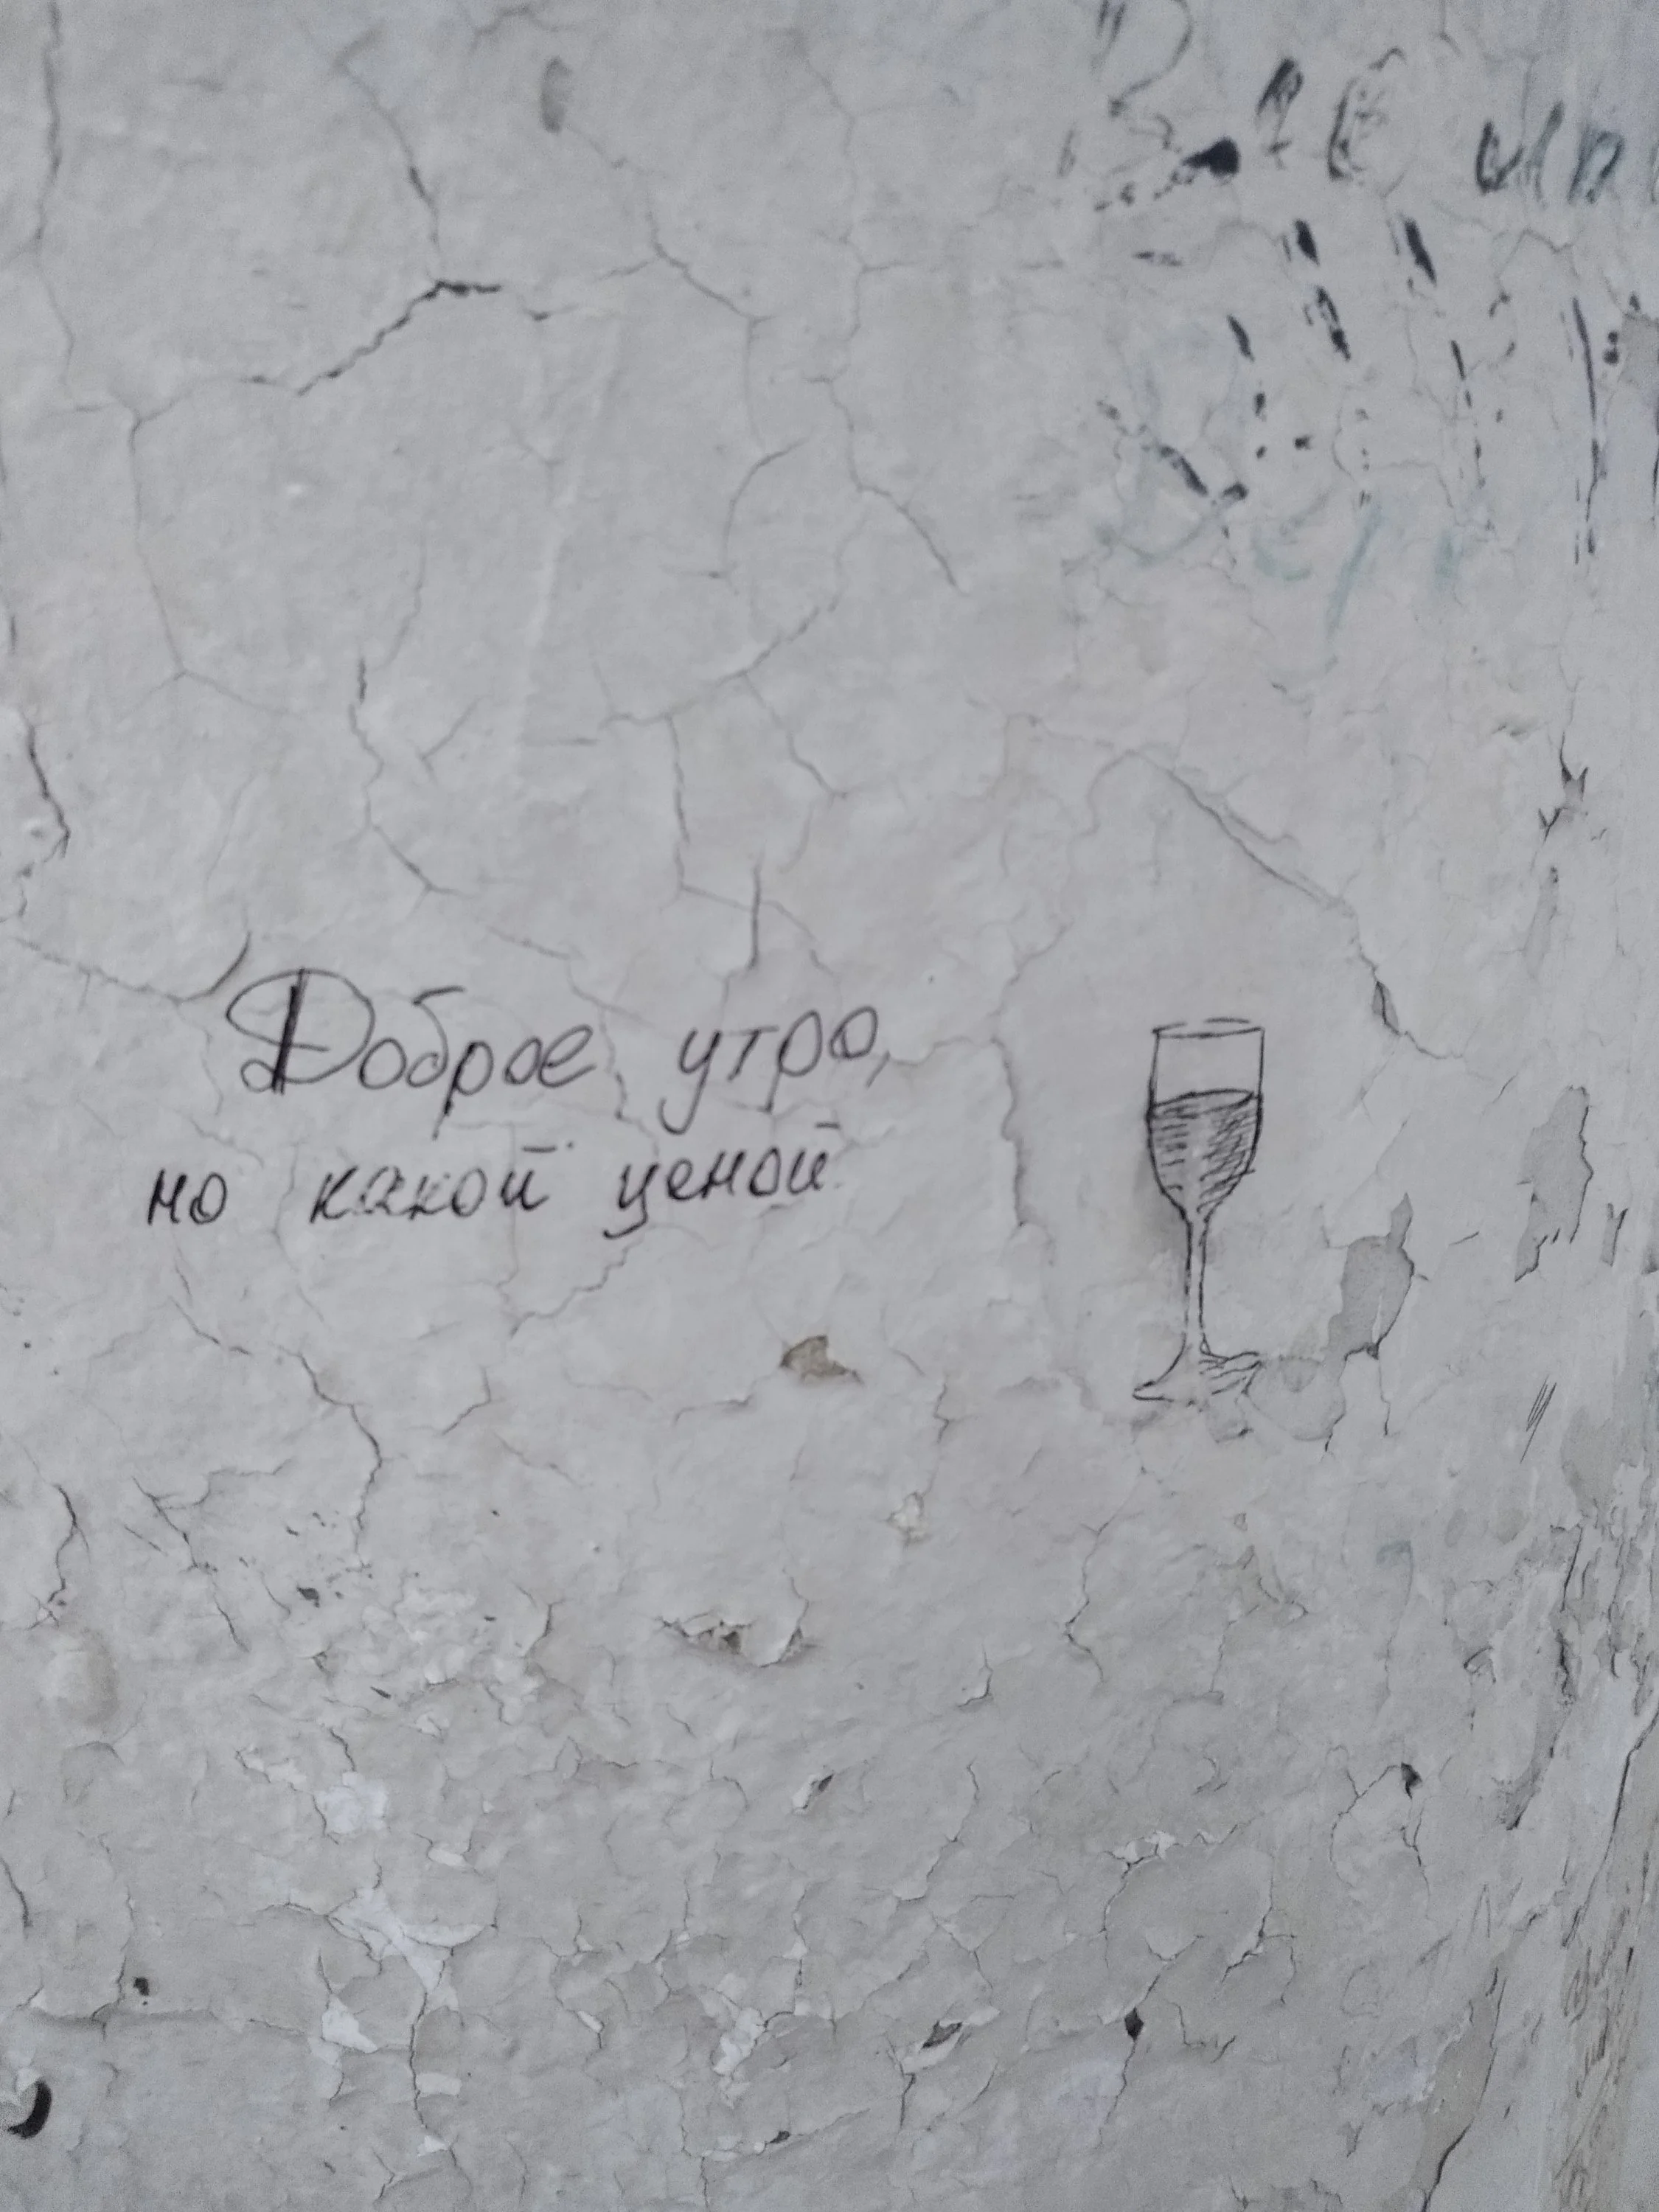 Доброе утро,
но какой ценой